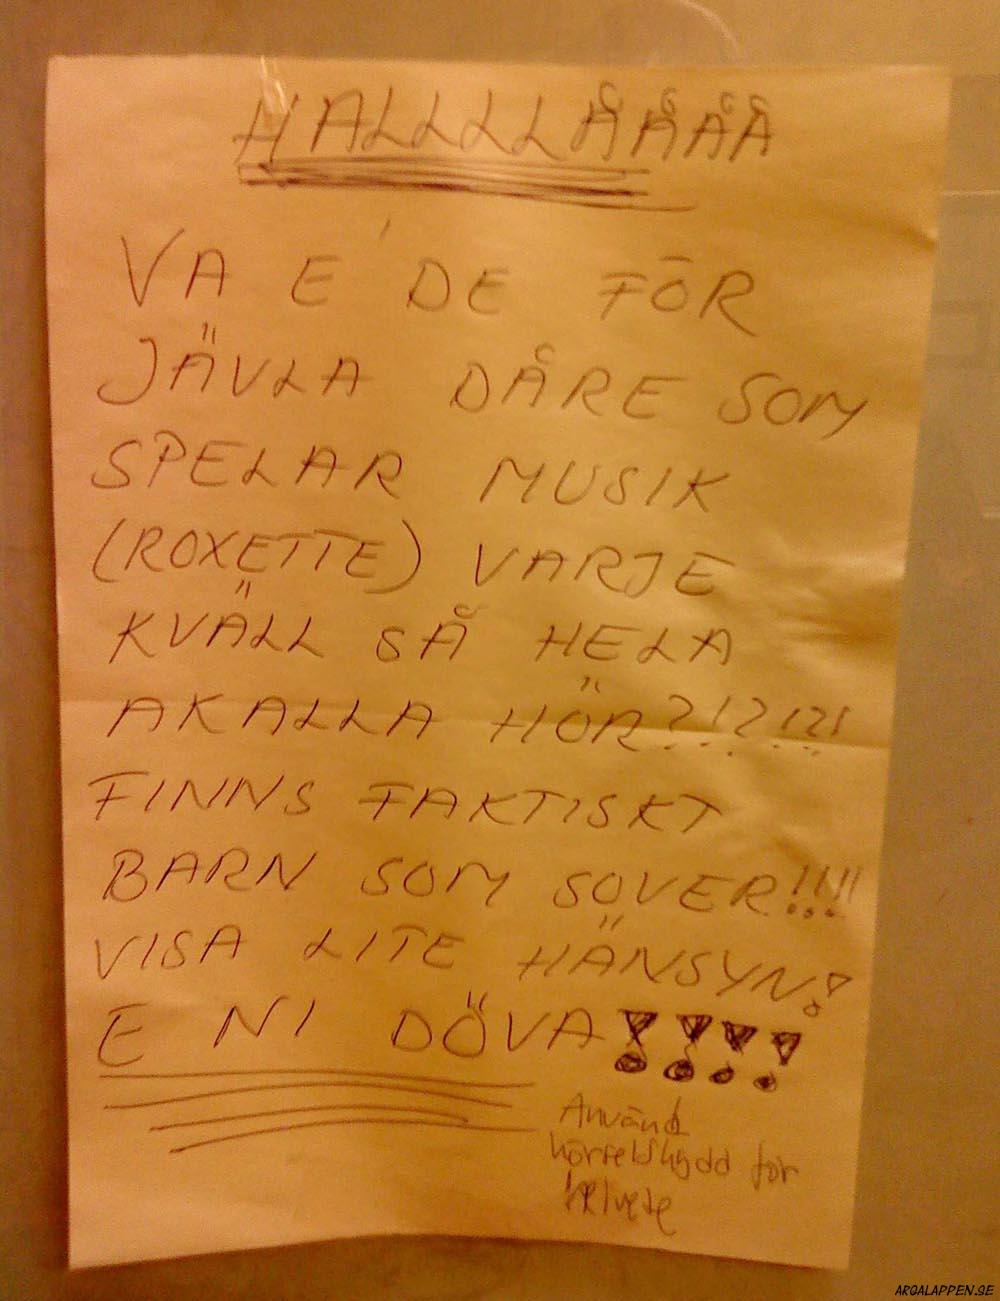 HALLLLÅÅÅÅ
VA E DE FÖR
JÄVLA DÅRE SOM
SPELAR MUSIK
(ROXETTE) VARJE
KVÄLL SÅ HELA
AKALLA HÖR?!?!?!
FINNS FAKTISKT
BARN SOM SOVER!!!!
VISA LITE HÄNSYN!
E NI DÖVA!!!!
Använd
hörselskydd för
helvete
ARGALAPPEN.SE